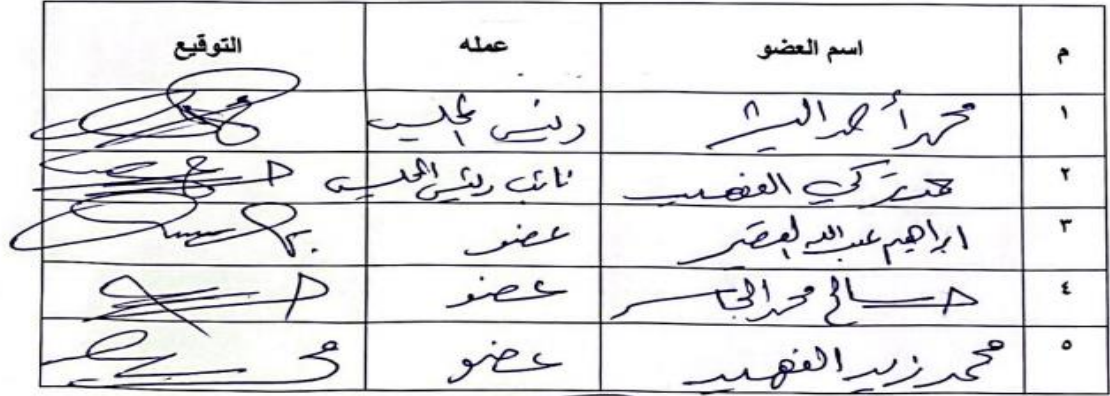 م اسم العضو عمله التوقيع
١ محمد أحمد البشر رئيس المجلس
٢ حمد تركي الفهيد نائب رئيس المجلس
٣ ابراهيم عبدالله عضو
٤ صالح محمد الجاسر عضو
٥ محمد زيد الفهيد عضو